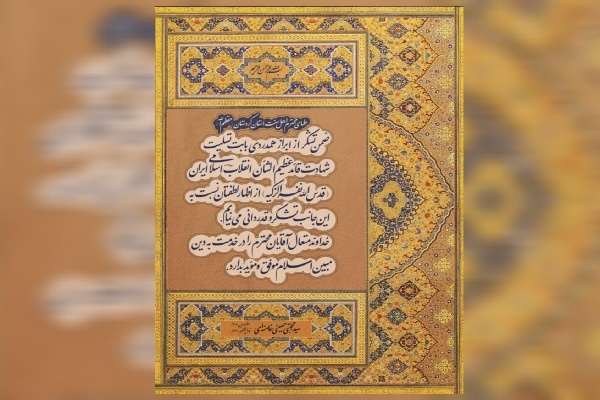 بسم الله الرحمن الرحیم
علمای محترم اهل سنت استان کردستان
ضمن تشکر از ابراز همدردی بابت تسلیت
شهادت قائد عظیم الشان انقلاب اسلامی ایران
از اظهار لطفتان نسبت به
این جانب تشکر و قدردانی می نمایم.
خداوند متعال آقایان محترم را در خدمت به دین
مبین اسلام موفق و مؤید بدارد.
سید مجتبی حسینی خامنه‌ای